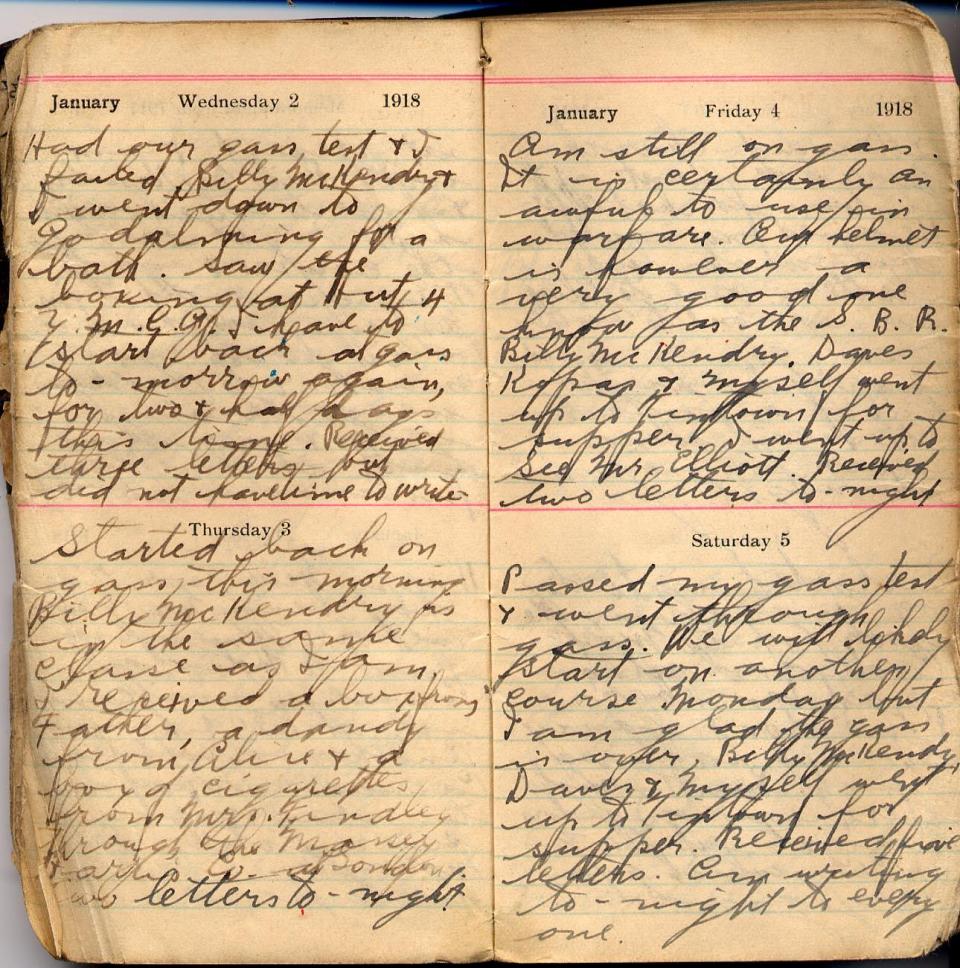 January Wednesday 2 1918
Had our gass test & I
failed Billy McKendry &
I went down to
Godalming for a
bath. Saw the
boxing at Hut 4
Y.M.C.A. I have to
start back at gass
to-morrow again,
for two & half days
this time. Received
three letters but
did not have time to write
Thursday 3
Started back on
gass this morning
Billy McKendry is
in the same
classe as I am,
I received a box from
Father, a dandy
from Alice & a
box of cigarettes
from Mrs. Findley
through the Massey
Harris Co.
letters to-night
January Friday 4 1918
Am still on gass.
It is certainly an
awful to use in
warfare. Our helmet
is however a
very good one
know as the S. B. R.
Billy McKendry. Daves
& myself went
up to Tintown for
supper. I went up to
see Mr Elliott. Received
two letters to-night
Saturday 5
Passed my gass test
& went through
gass. We will likely
start on another
course Monday but
I am glad the gass
is over, Billy McKendry,
Davey & myself went
up to Tintown for
supper. Received five
letters. Am writing
to-night to every
one.